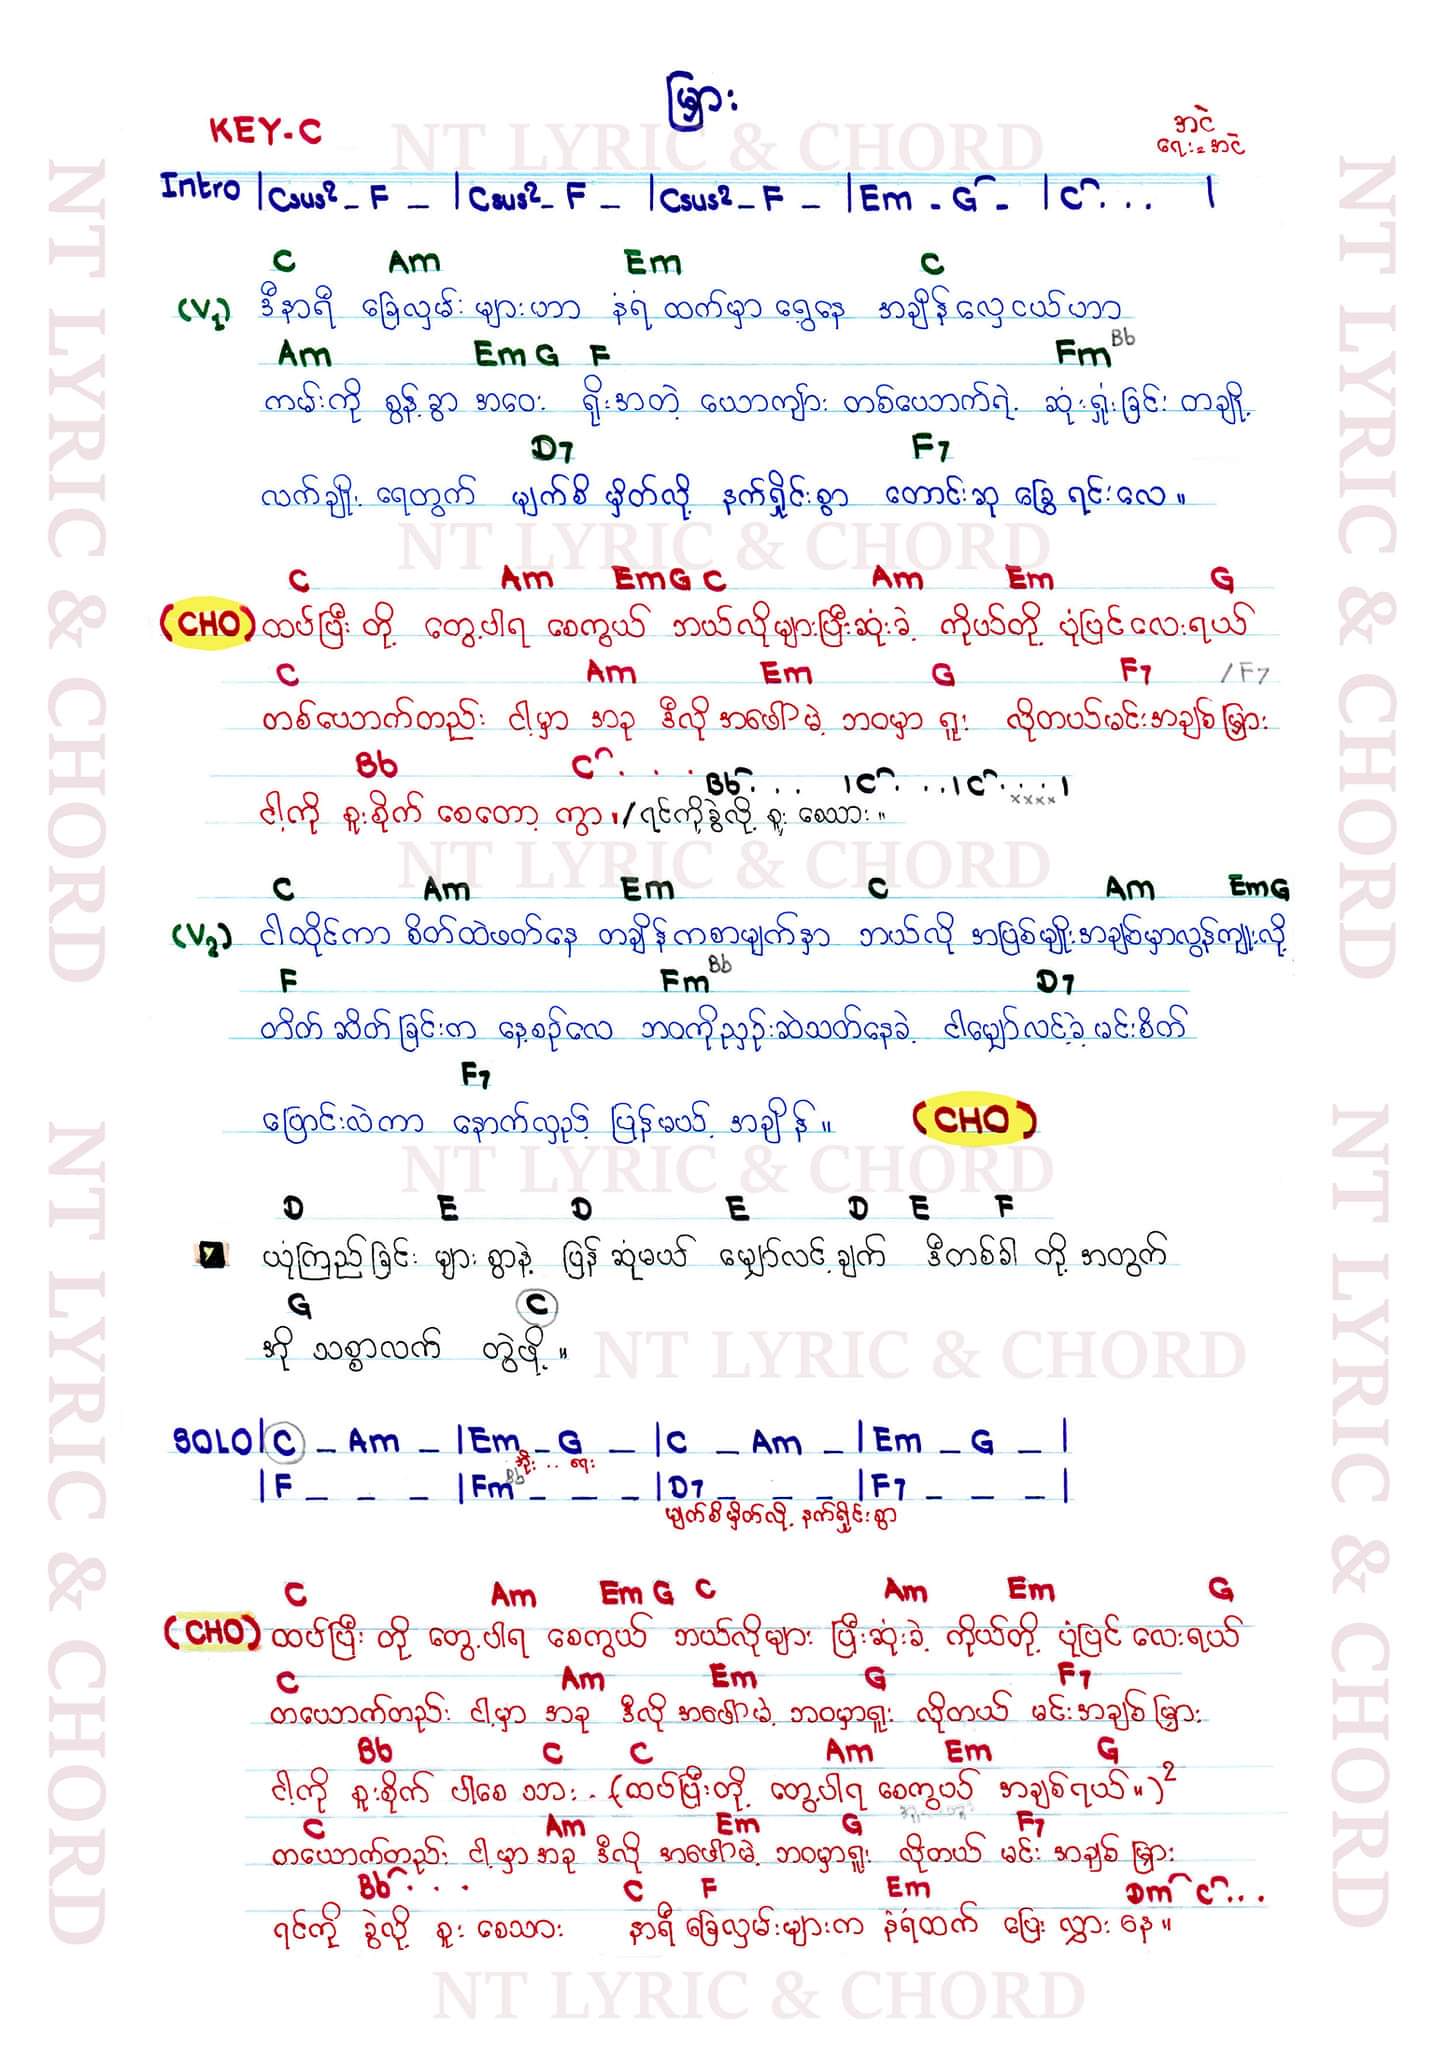 မြှား
KEY-C
အငဲ
ရေး=အငဲ
NT LYRIC & CHORD
Intro |Csus2 - F - |Csus2 - F - |Csus2 - F - |Em - G - |C . . . |
C Am Em C
(V1) ဒီနာရီ ခြေလှမ်း များဟာ နံရံ ထက်မှာ ရွေ့နေ အချိန် လှေငယ်ဟာ
Am Em G F Fm Bb
ကမ်းကို စွန့်ခွာ အဝေး ရိုးအတဲ့ ယောကျာ်း တစ်ယောက်ရဲ့ ဆုံးရှုံးခြင်း တချို့
D7 F7
လက်ချိုး ရေတွက် မျက်စိ မှိတ်လို့ နက်ရှိုင်းစွာ တောင်းဆု ခြွေ ရင်းလေ။
NT LYRIC & CHORD
C Am Em G C Am Em G
(CHO) ထပ်ပြီး တို့ တွေ့ပါရ စေကွယ် ဘယ်လိုများပြီးဆုံးခဲ့ ကိုယ်တို့ ပုံပြင်လေးရယ်
C Am Em G F7 /F7
တစ်ယောက်တည်း ငါ့မှာ အခု ဒီလို အဖော်မဲ့ ဘဝမှာ ရူး လိုတယ်မင်းအချစ်မြှား
Bb C . . . Bb . . . |C . . . |C . . . . |
xxxx
ငါ့ကို စူးစိုက် စေတော့ ကွာ ။/ရင်ကိုခွဲလို့ စူး စေသား ။
NT LYRIC & CHORD
C Am Em C Am Em G
(V2) ငါထိုင်ကာ စိတ်ထဲဖတ်နေ တချိန်ကစာမျက်နှာ ဘယ်လို အဖြစ်မျိုးအချစ်မှာလွန်ကျူးလို့
F Fm Bb D7
တိတ်ဆိတ်ခြင်းက နေ့စဉ်လေ ဘဝကိုညှဉ်းဆဲသတ်နေခဲ့ ငါမျှော်လင့်ခဲ့ မင်းစိတ်
F7
ပြောင်းလဲကာ နောက်လှည့် ပြန်မယ့် အချိန်။ (CHO)
NT LYRIC & CHORD
D E D E D E F
ယုံကြည်ခြင်း များစွာနဲ့ ပြန်ဆုံမယ် မျှော်လင့်ချက် ဒီတစ်ခါ တို့ အတွက်
G C
အို သစ္စာလက် တွဲဖို့။
NT LYRIC & CHORD
SOLO |C - Am - |Em - G - |C - Am - |Em - G - |
|F - - - |Fm Bb - - - |D7 - - - |F7 - - - |
မျက်စိမှိတ်လို့ နက်ရှိုင်းစွာ
C Am Em G C Am Em G
(CHO) ထပ်ပြီး တို့ တွေ့ပါရ စေကွယ် ဘယ်လိုများ ပြီးဆုံးခဲ့ ကိုယ်တို့ ပုံပြင်လေးရယ်
C Am Em G F7
တယောက်တည်း ငါ့မှာ အခု ဒီလို အဖော်မဲ့ ဘဝမှာရူး လိုတယ် မင်းအချစ်မြှား
Bb C C Am Em G
ငါ့ကို စူးစိုက် ပါစေ သား . .(ထပ်ပြီးတို့ တွေ့ပါရ စေကွယ် အချစ်ရယ်။)2
C Am Em G F7
တယောက်တည်း ငါ့မှာအခု ဒီလို အဖော်မဲ့ ဘဝမှာရူး လိုတယ် မင်း အချစ်မြှား
Bb . . . C F Em Dm C . . .
ရင်ကို ခွဲလို့ စူး စေသား နာရီ ခြေလှမ်းများက နံရံထက် ပြေး လွှား နေ။
NT LYRIC & CHORD
NT LYRIC & CHORD
NT LYRIC & CHORD
NT LYRIC & CHORD
NT LYRIC & CHORD